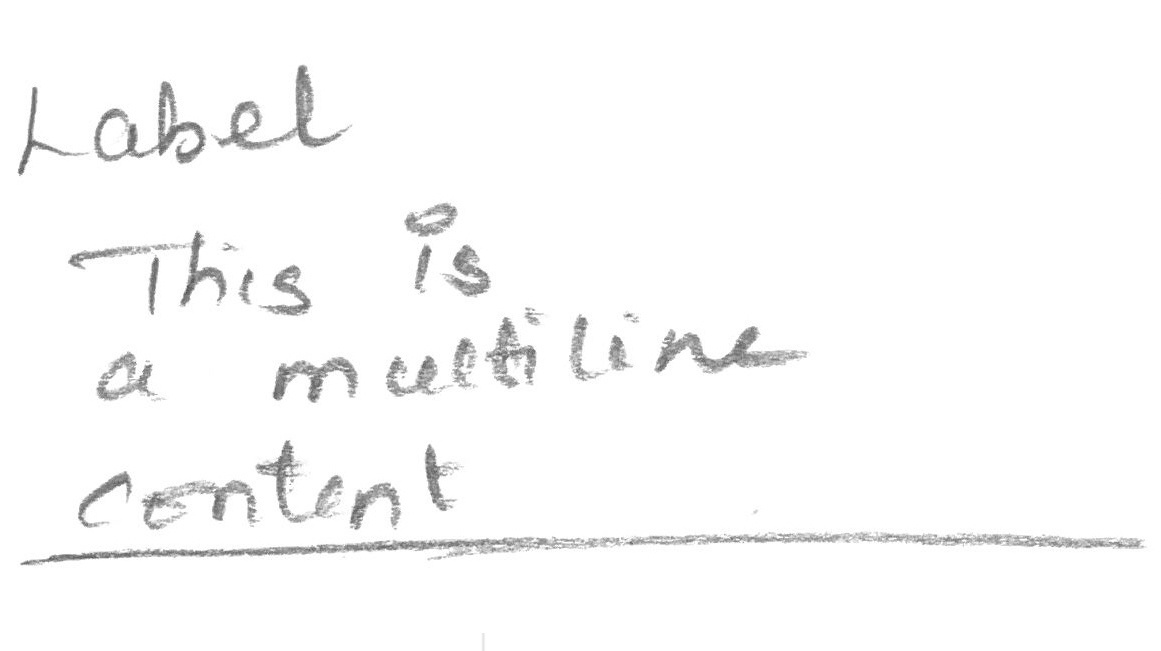 Label
This is
a multiline
content